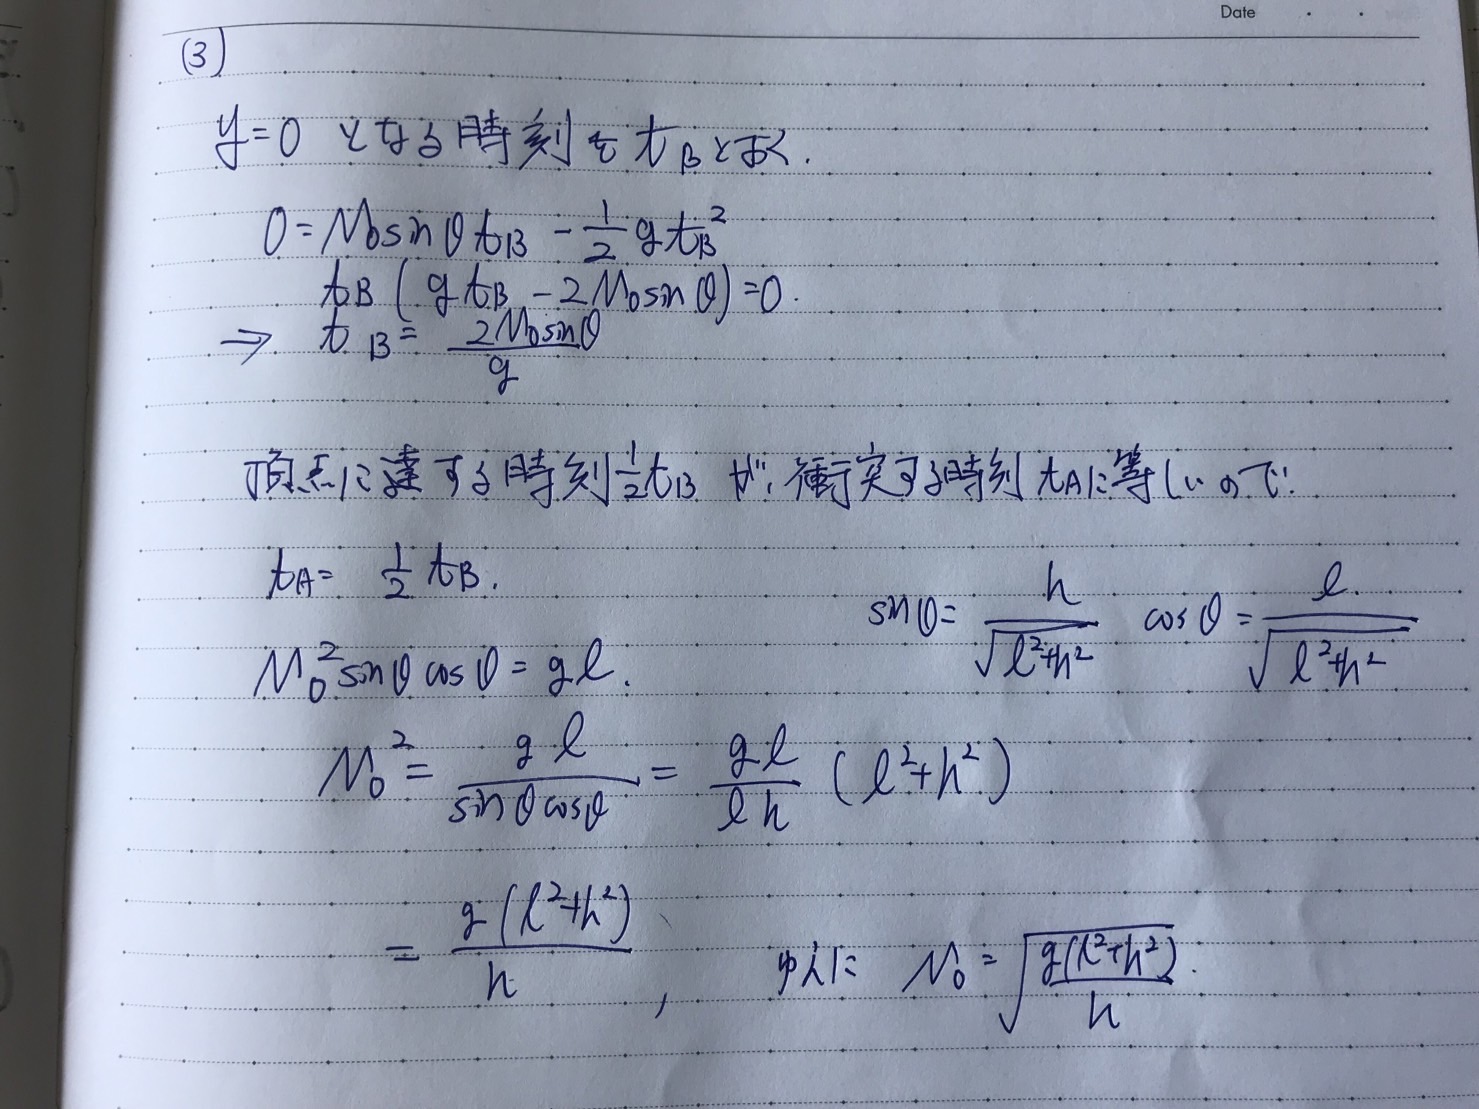 Date
(3)
y=0 となる時刻を t_Bとおく.
0=v_0 sinθ t_B - 1/2 g t_B^2
t_B ( g t_B - 2v_0 sinθ)=0.
⇒ t_B= 2v_0 sinθ / g
頂点に達する時刻 1/2 t_B が, 衝突する時刻 t_Aに等しいので.
t_A= 1/2 t_B.
sinθ= h / √(l^2+h^2) cosθ = l / √(l^2+h^2)
v_0^2 sinθ cosθ = gl.
v_0^2 = gl / sinθ cosθ = gl / lh (l^2+h^2)
= g(l^2+h^2) / h , ゆえに v_0 = √(g(l^2+h^2) / h).